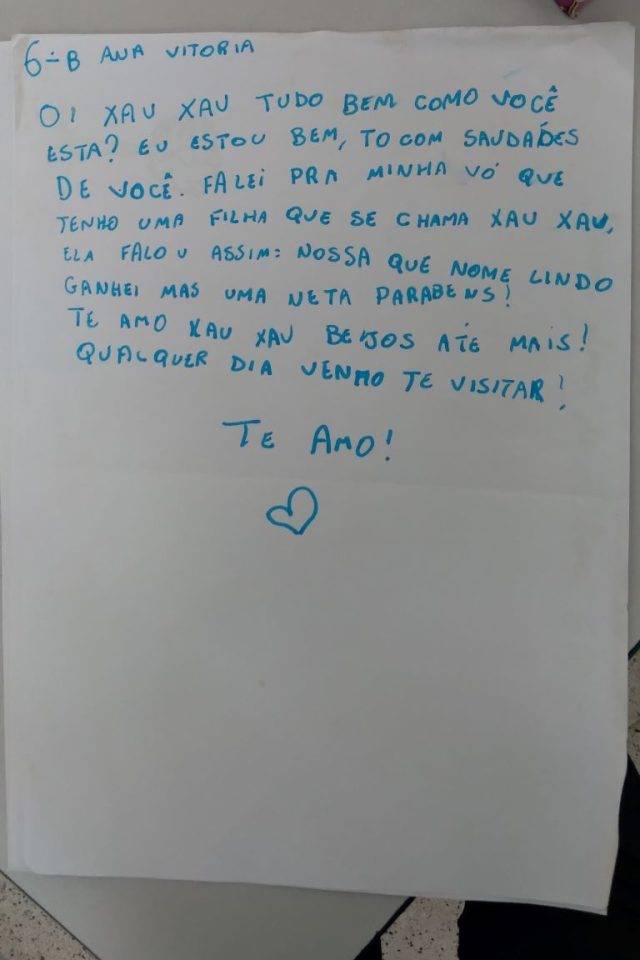 6-B ANA VITORIA
OI XAU XAU TUDO BEM COMO VOCÊ
ESTA? EU ESTOU BEM, TO COM SAUDADES
DE VOCÊ. FALEI PRA MINHA VÓ QUE
TENHO UMA FILHA QUE SE CHAMA XAU XAU,
ELA FALOU ASSIM: NOSSA QUE NOME LINDO
GANHEI MAS UMA NETA PARABENS!
TE AMO XAU XAU BEIJOS ATÉ MAIS!
QUALQUER DIA VENHO TE VISITAR!
TE AMO!